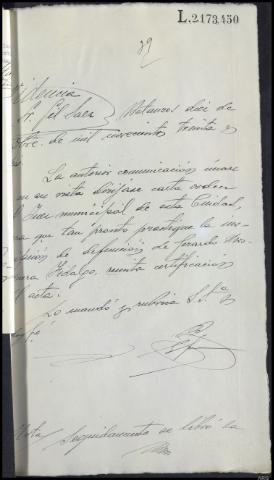 L.2173450
89
idencia
r. Gil Saez Matanzos diez de
bre de mil novecientos treinta y
La anterior comunicación únase
en su vista diríjase carta orden
l Juez municipal de esta Ciudad,
ra que tan pronto practique la ins-
de defunción de Gerardo
Hidalgo, remita certificación
l acta.
Lo mandó y rubrica S.Sª y
doy fé.
Nota Seguidamente se libró la